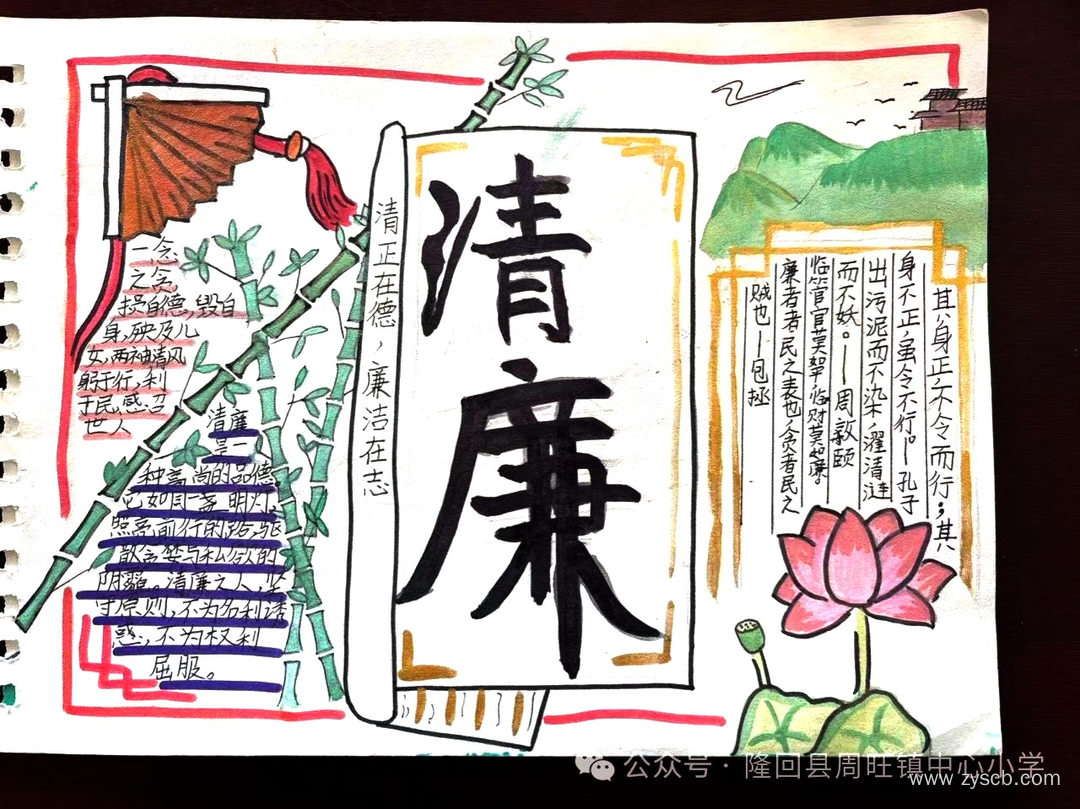 清廉
清正在德，廉洁在志
一念
之贪，
损自德，毁自
身，殃及儿
女，两袖清风
躬于行，利
于民，感召
世人
清廉
是一
种高尚的品德，
它如同一盏明灯，
照亮前行的路，驱
散贪婪与私欲的
阴霾。清廉之人，坚
守原则，不为名利诱
惑，不为权利
屈服。
其身正，不令而行；其
身不正，虽令不行。——孔子
出污泥而不染，濯清涟
而不妖。——周敦颐
临官莫架，临财莫如廉。
廉者者民之表也，贪者民之
贼也——包拯
公众号·隆回县周旺镇中心小学
www.zyscb.com